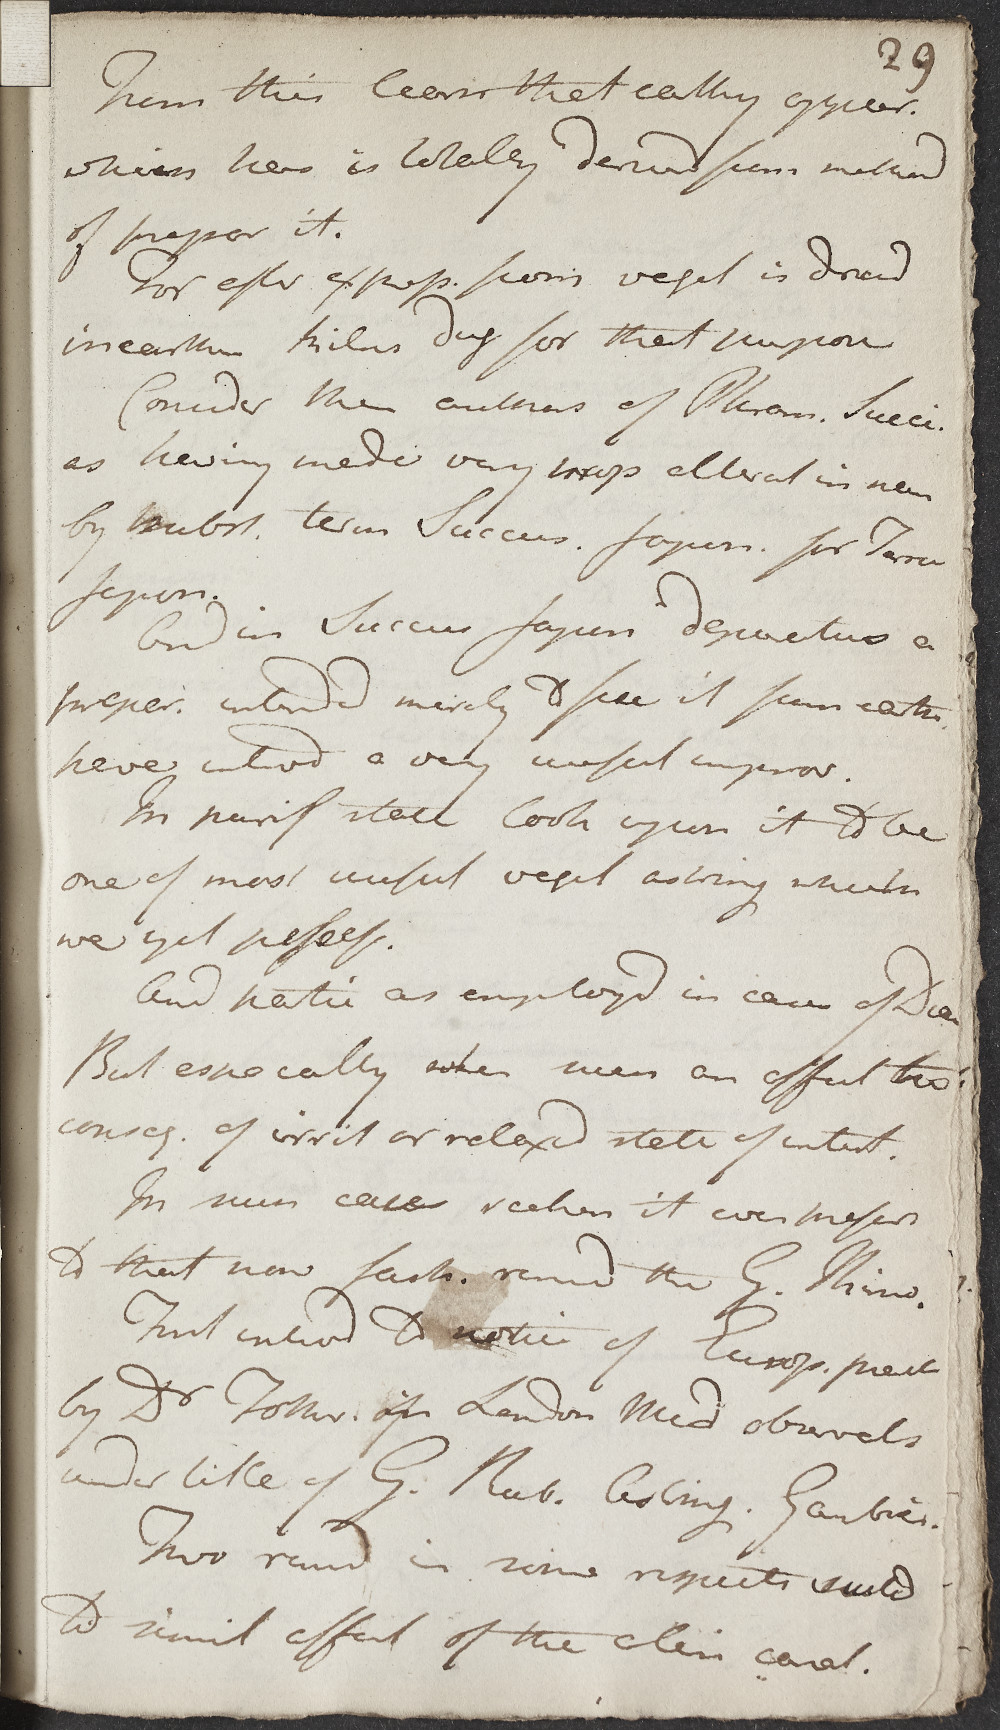 29
From this learn that earthy appear.
which has is totally derived from method
of prepar it.
For after express. from veget is dried
in earthen kilns dug for that purpose
Consider then authors of Pharm. Sueci.
as having made very improp alterat in new
by subst. term Succus. Japon. for Terra
Japon.
And in Succus Japon depuratus a
prepar. intended merely to free it from earth.
have introd a very useful improv.
In purif state look upon it to be
one of most useful veget astring which
we yet possess.
And partic as employd in cases of Diar
But especially when mere an effect
conseq. of irrit or relaxed state of intest.
In such cases reckon it even prefer
to that now fash. remed the G. Kino.
First introd to notice of Europ. pract
by Dr Fother. in London Med observats
under title of G. Rub. Astring. Gambien.
Two remed in some respects suited
to simil affect of the alim canal.